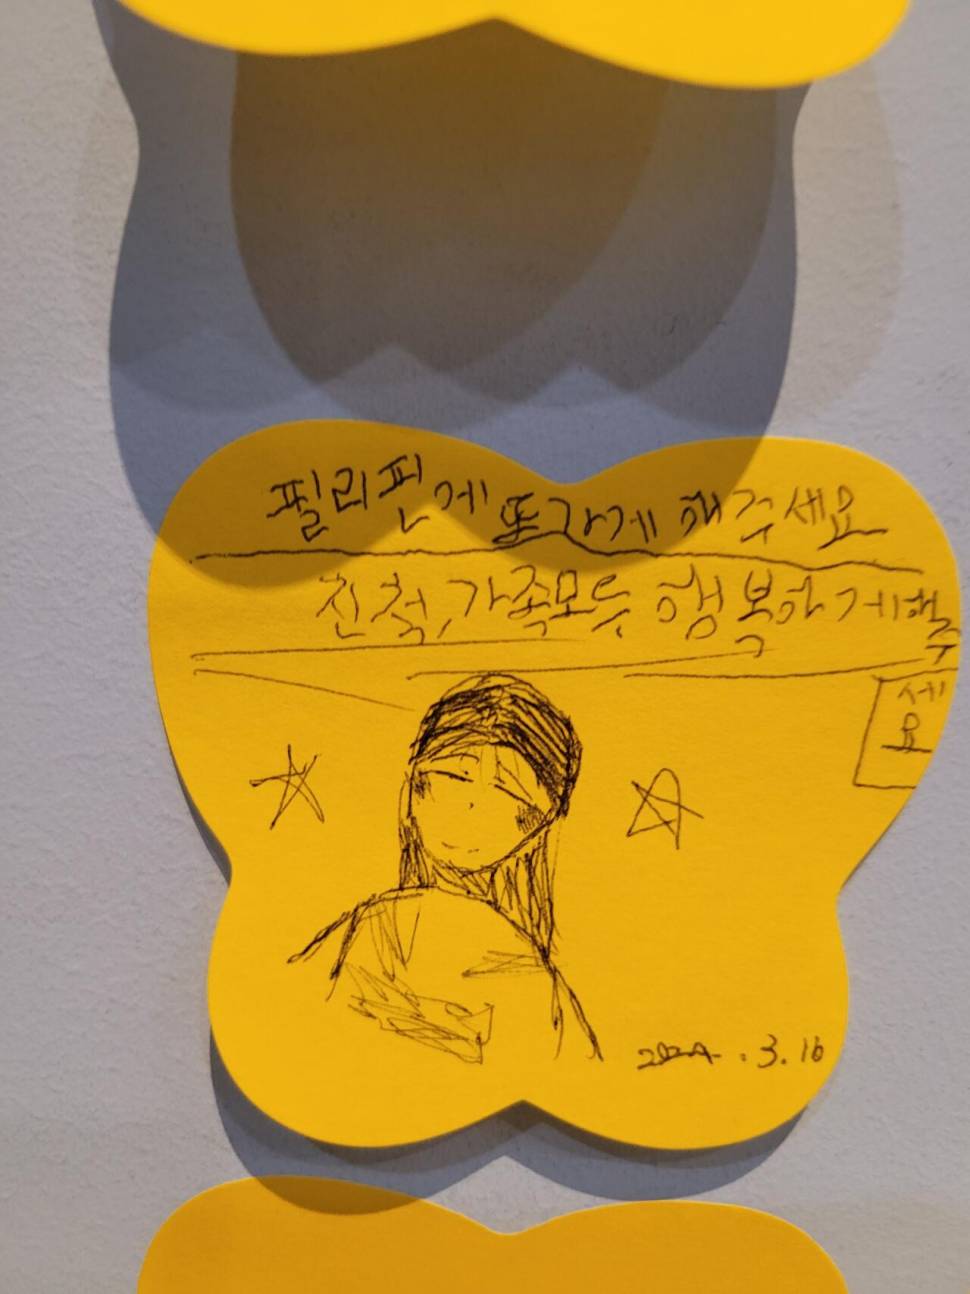 필리핀에 또가게 해주세요
친척,가족모두 행복하게해주
세
요
2024.3.16